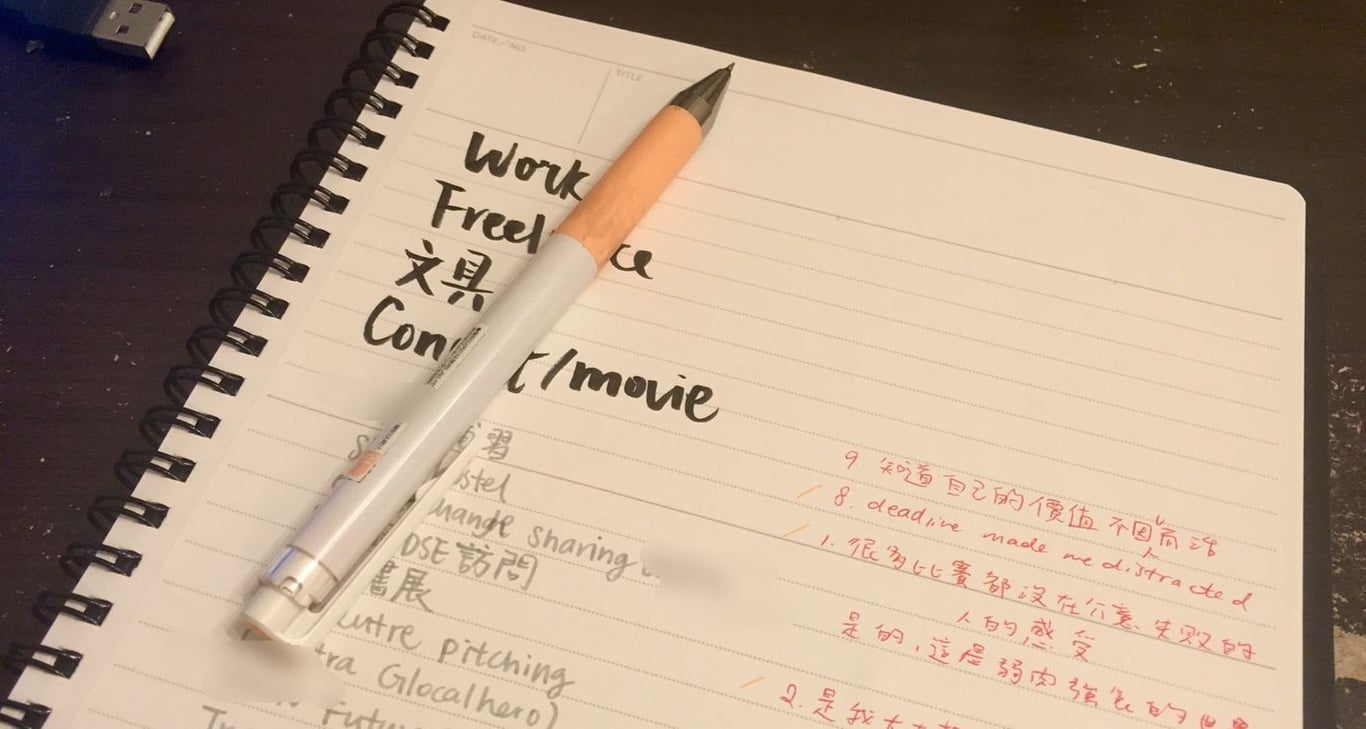 DATE/NO.
TITLE
Work
Freel ce
文具
Con t/movie
習
stel
hange sharing
DSE 訪問
書展
utre pitching
tra Glocalhero)
Futu
9. 知道自己的價值 不因人而活
8. deadline made me distracted
1. 很多比賽都沒在介意失敗的
人的感受
是的,這是弱肉強食的世界
2. 是我太